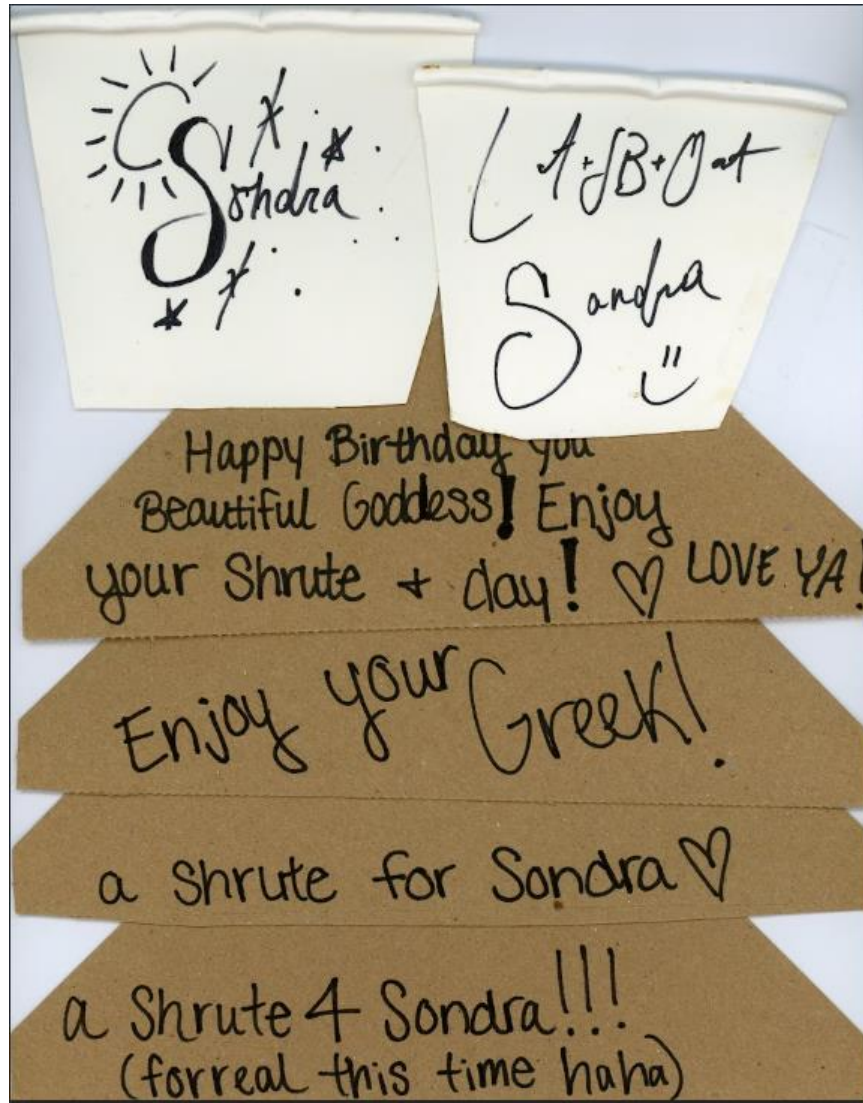 Sondra
L A+SB+Oat
Sandra
Happy Birthday you
Beautiful Goddess! Enjoy
your Shrute + day! ♡ LOVE YA!
Enjoy your Greek!
a Shrute for Sondra ♡
a Shrute 4 Sondra!!!
(forreal this time haha)